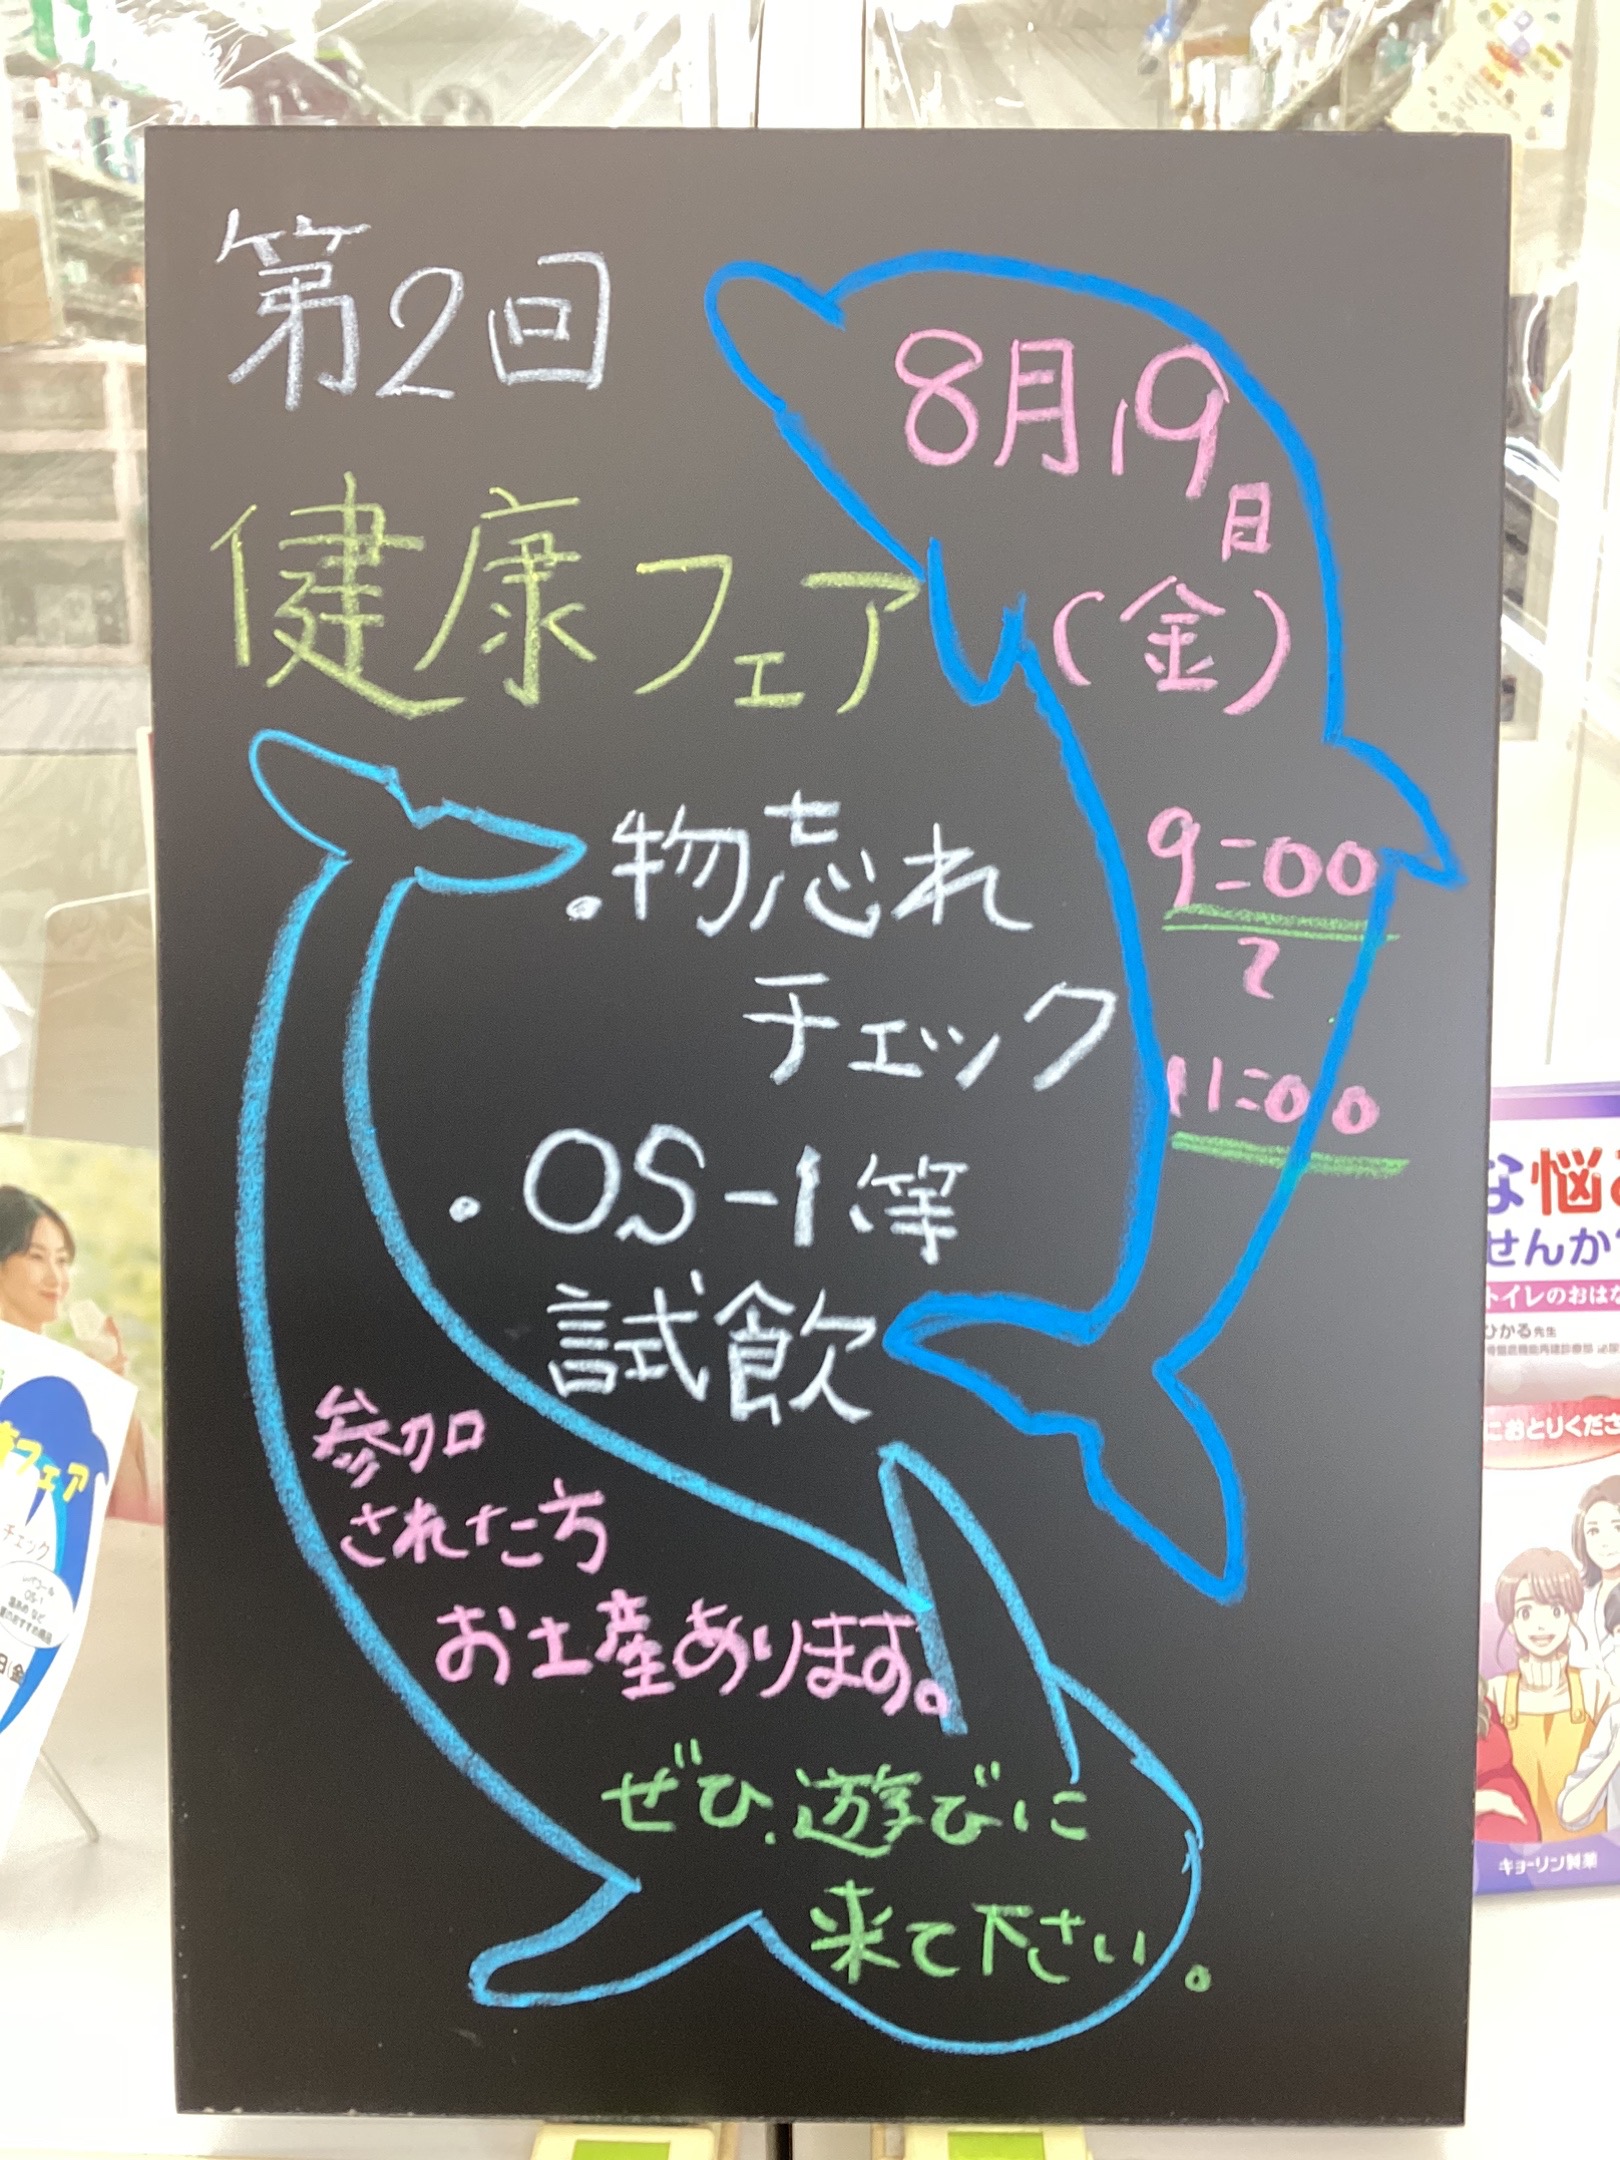 第2回
健康フェア
8月19日
(金)
9:00
～
11:00
・物忘れ
チェック
・OS-1等
試飲
参加
された方
お土産あります。
ぜひ、遊びに
来て下さい。
な悩み
せんか?
トイレのおはな
ひかる先生
におとりくださ
キョーリン製薬
フェア
チェック
OS-1